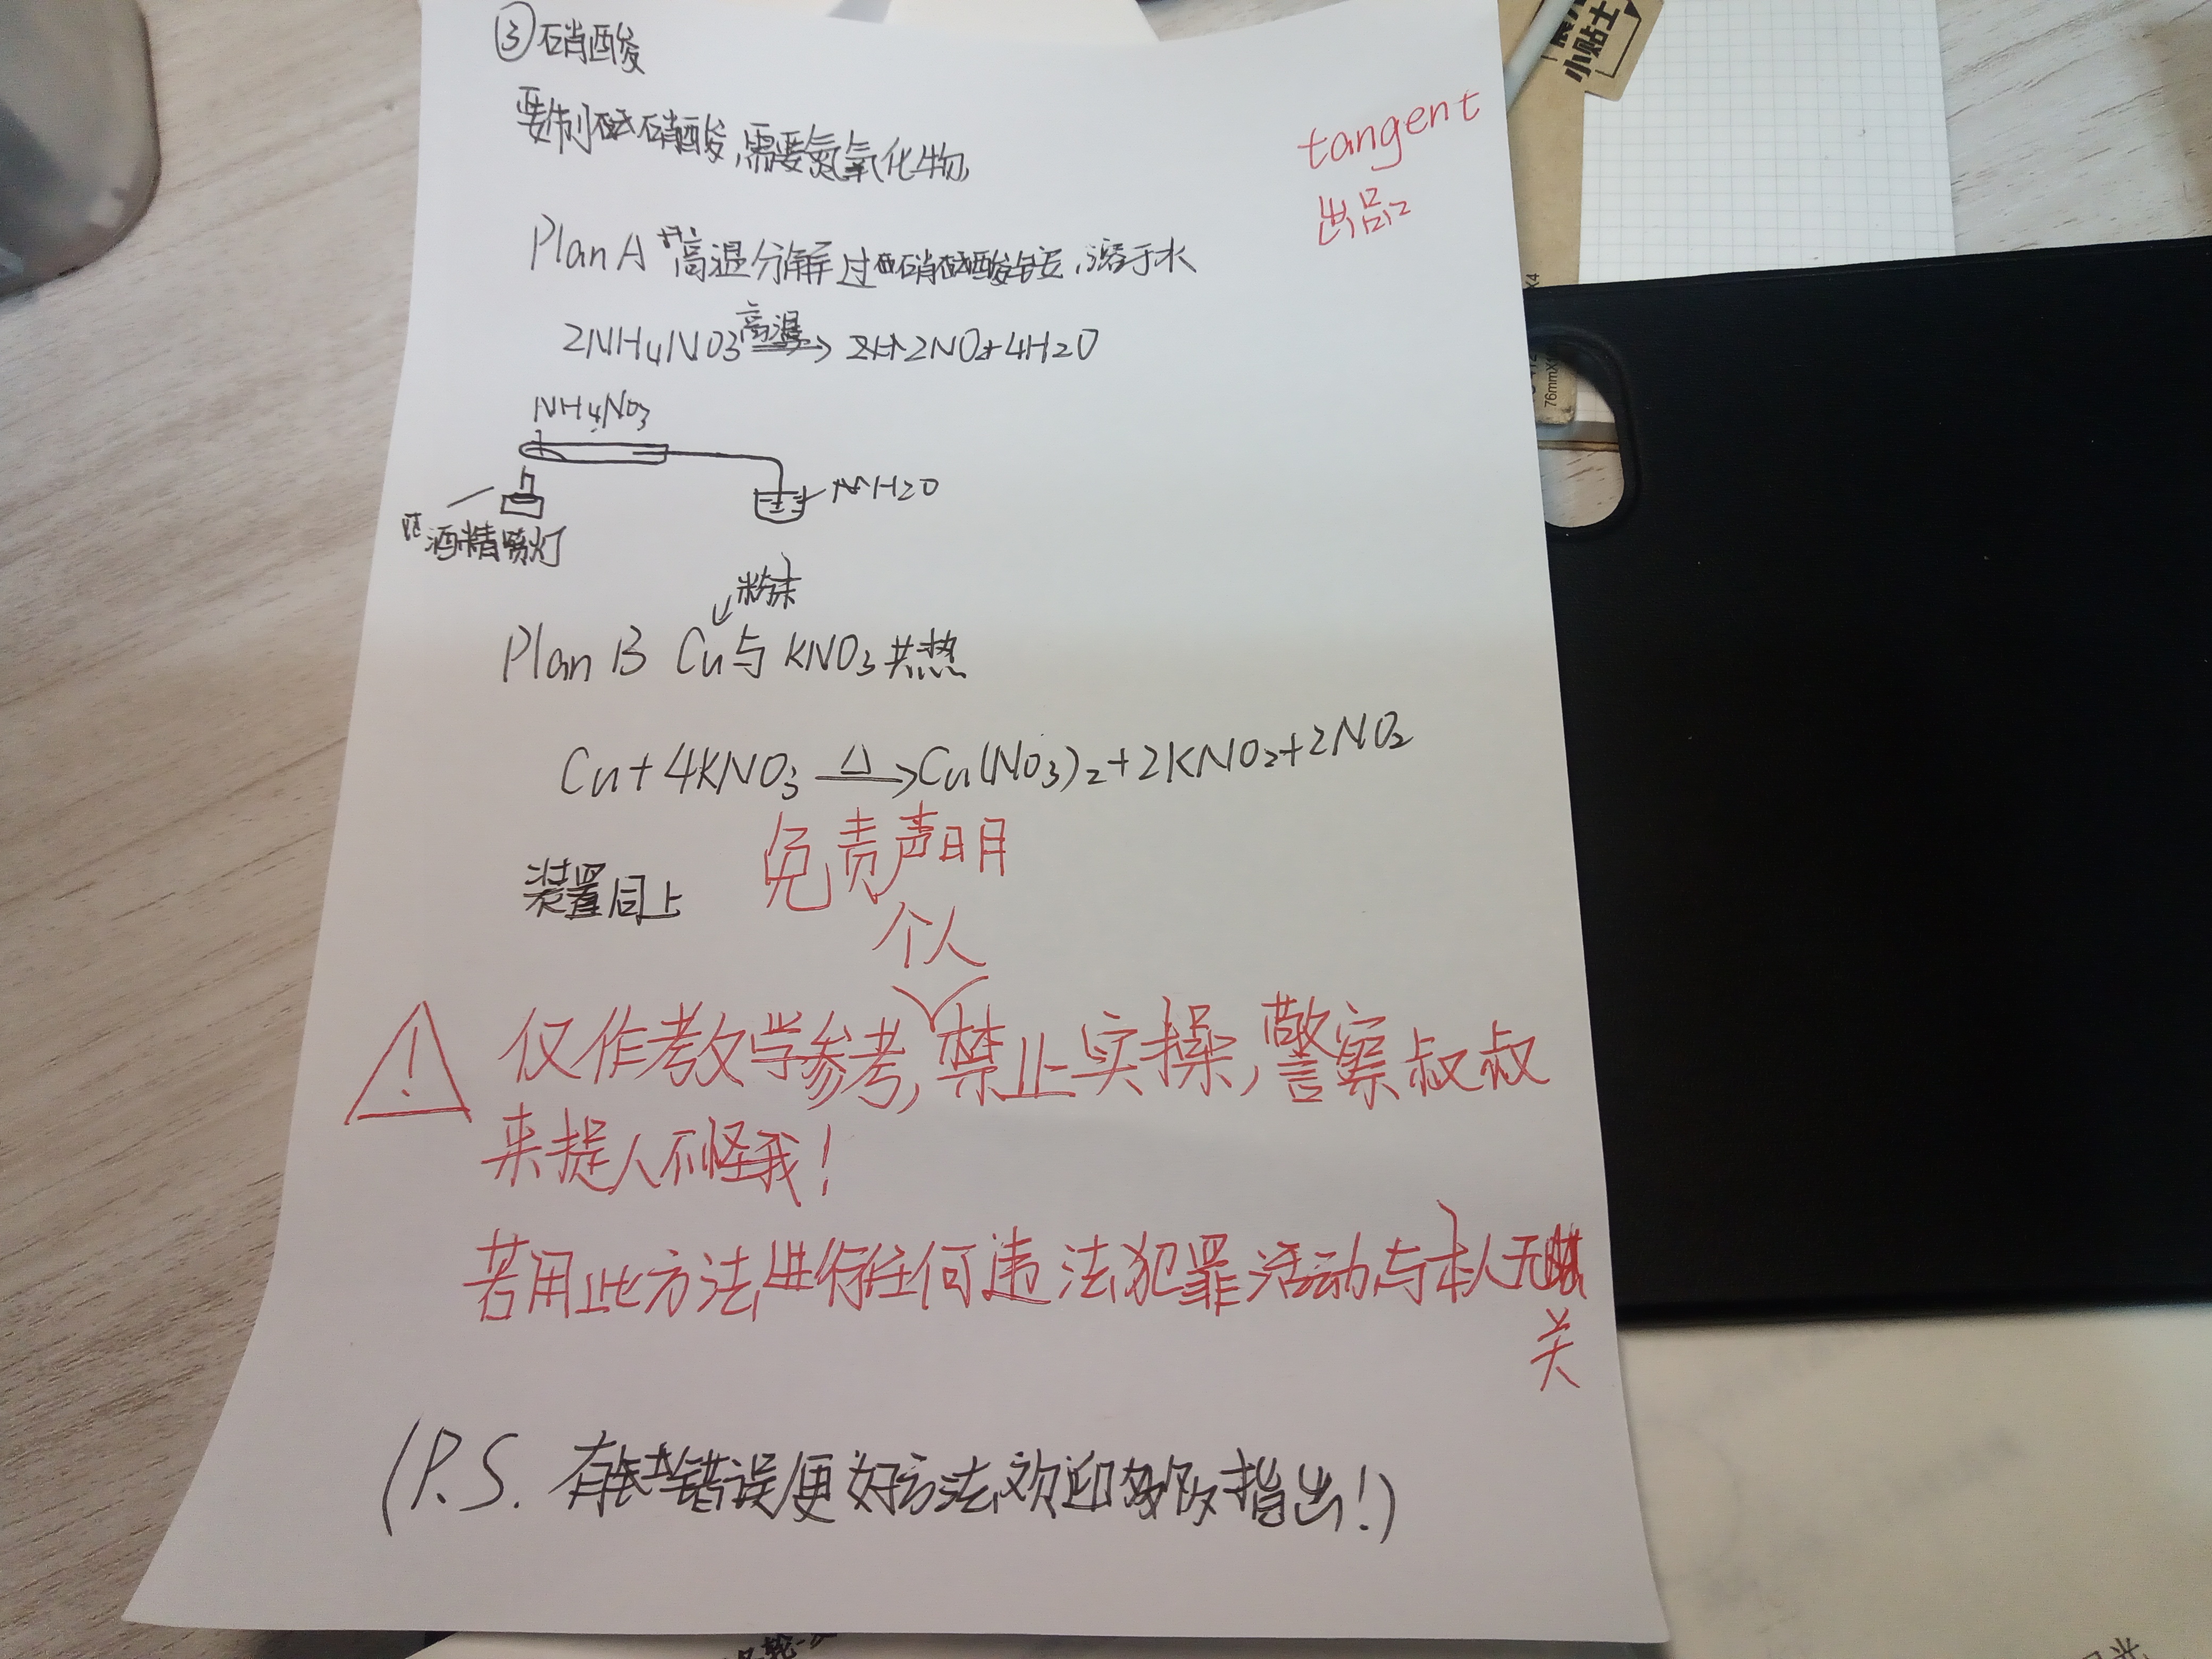 ③硝酸
要制硝酸,需要氮氧化物
tangent
出品
Plan A 高温分解硝酸铵,溶于水
2NH4NO3 高温→ 2NO+4H2O
NH4NO3
H2O
酒精喷灯
粉末
Plan B Cu与KNO3共热
Cu+4KNO3 △→Cu(NO3)2+2KNO2+2NO2
装置同上
免责声明
个人
! 仅作教学参考,禁止实操,警察叔叔
来提人不怪我!
若用此方法进行任何违法犯罪活动与本人无
关
(P.S. 有错误便好方法欢迎指出!)
小贴士
76mmX